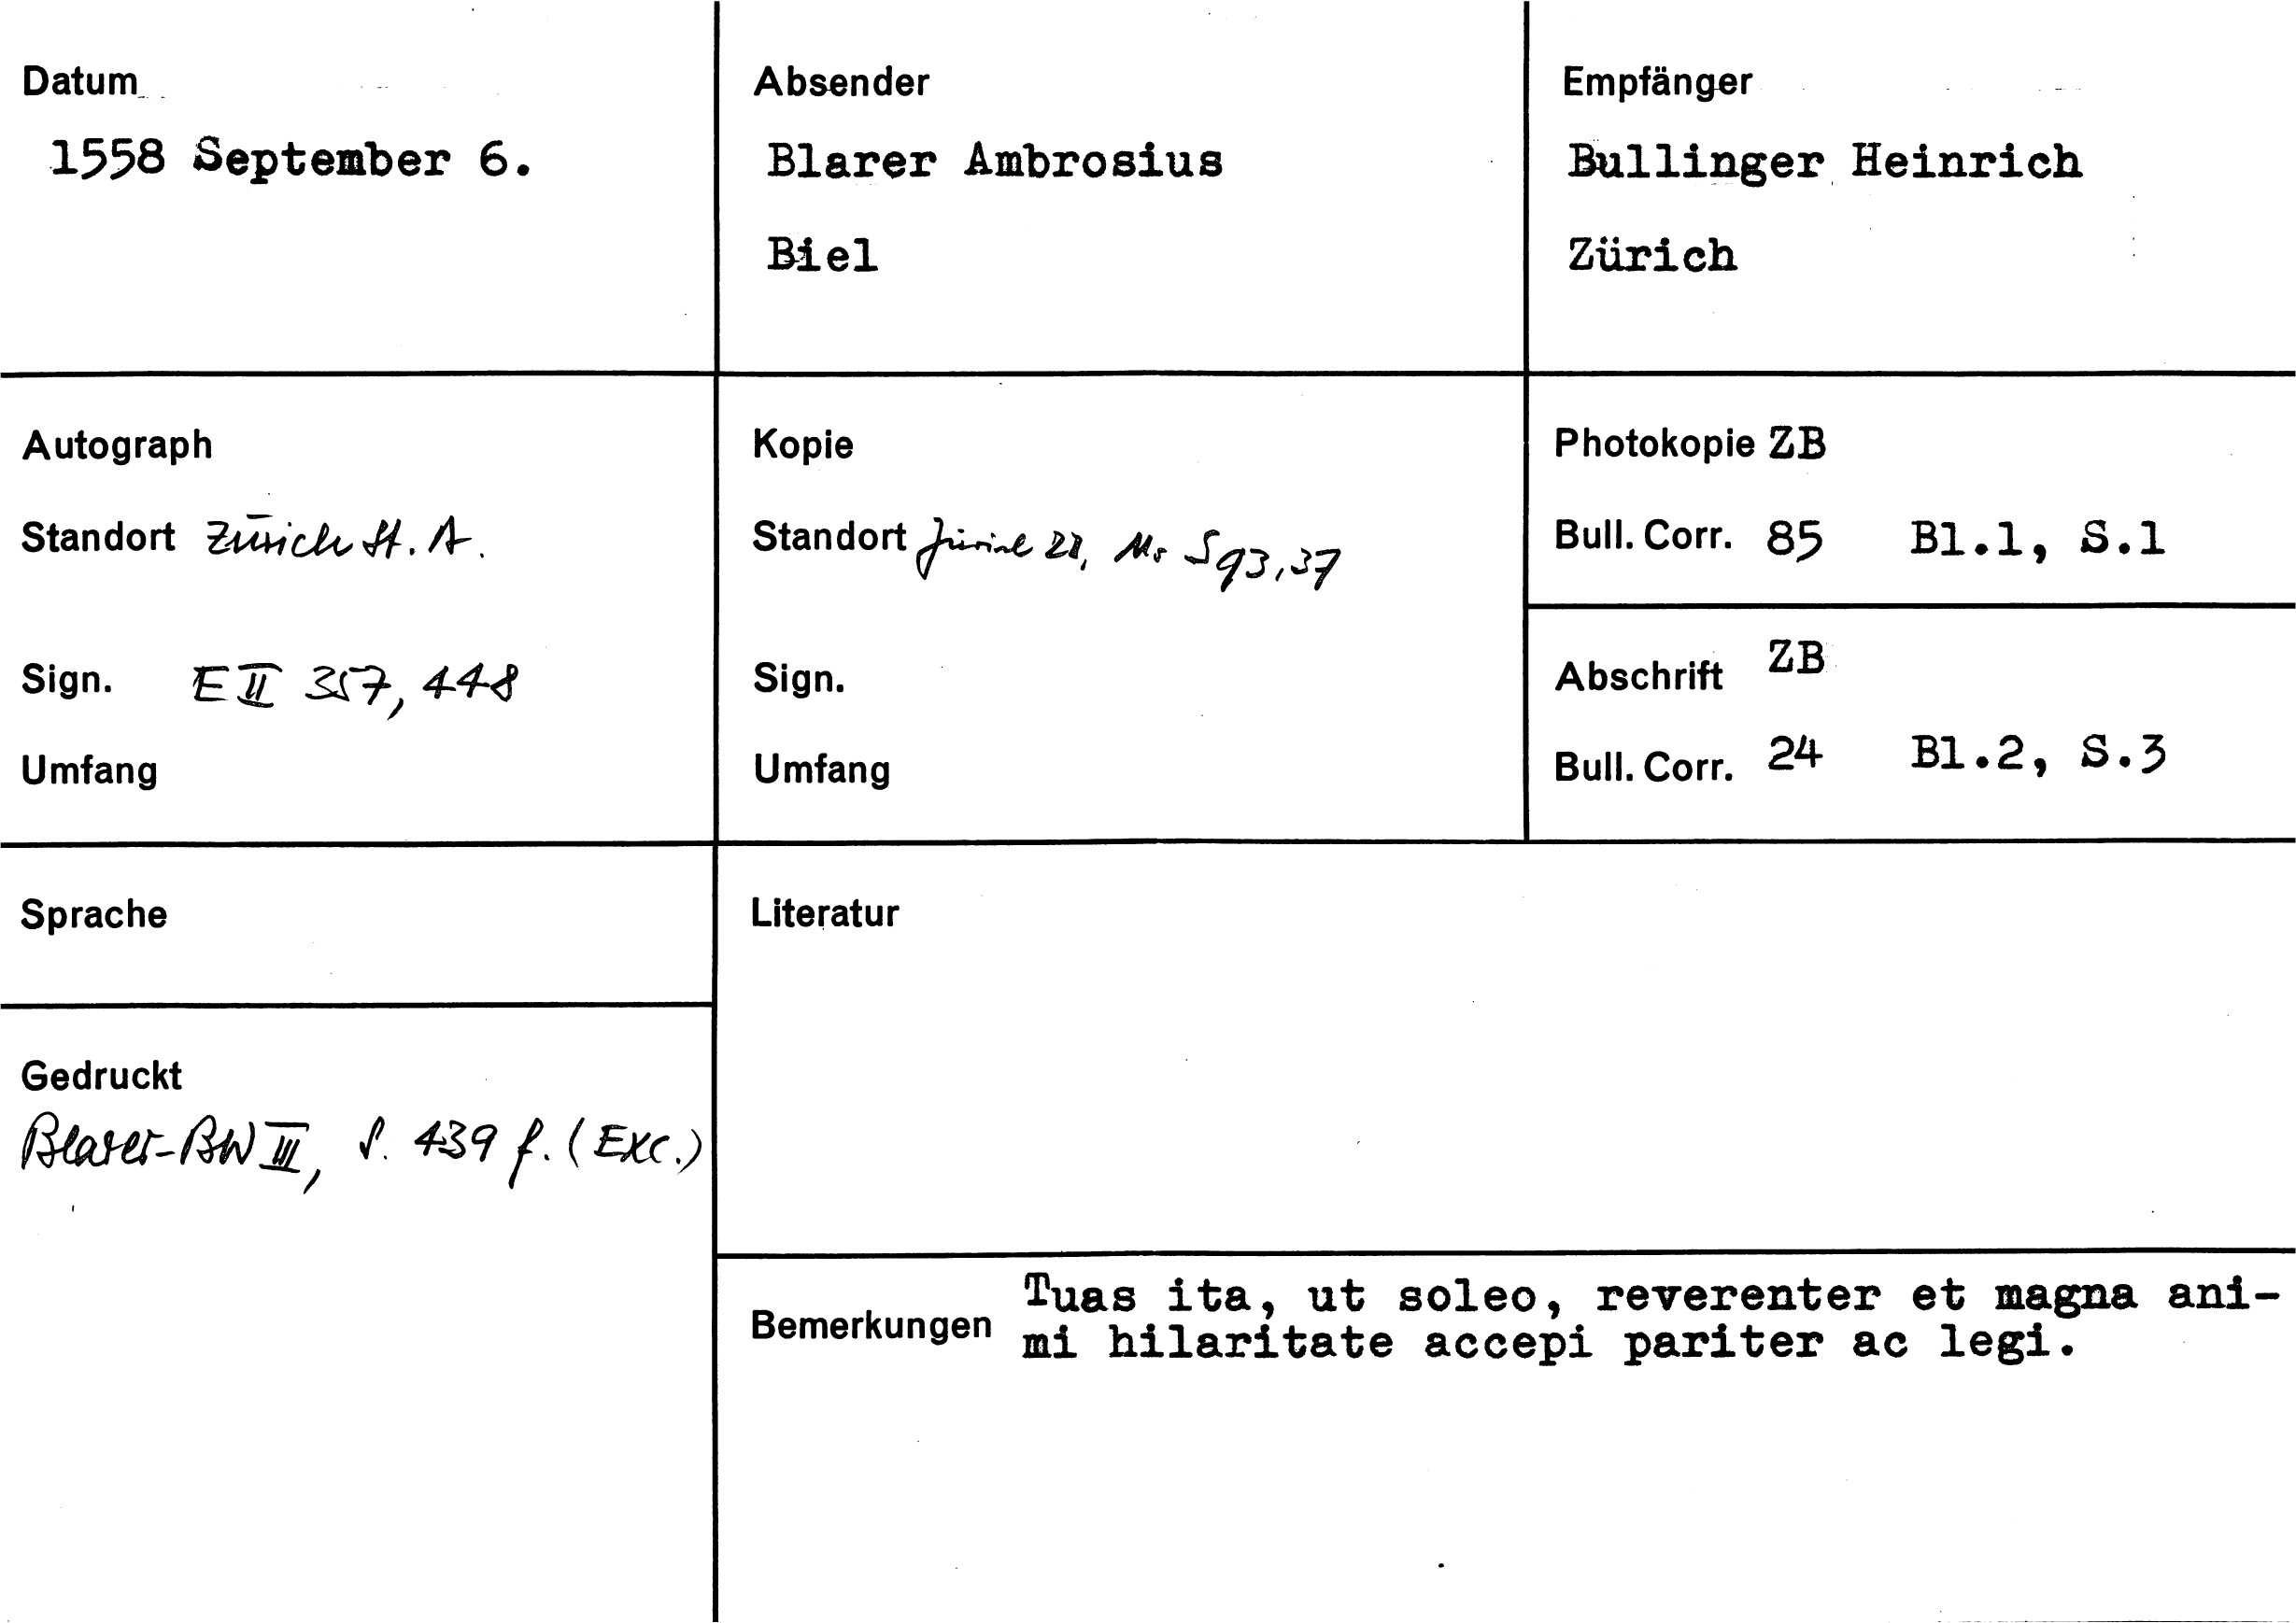 Datum
1558 September 6.
Absender
Blarer Ambrosius
Biel
Empfänger
Bullinger Heinrich
Zürich
Autograph
Standort Zürich St. A.
Sign. E II 357, 448
Umfang
Kopie
Standort Zürich ZB, Ms S 93, 37
Sign.
Umfang
Photokopie ZB
Bull. Corr. 85 Bl.1, S.1
Abschrift ZB
Bull. Corr. 24 Bl.2, S.3
Sprache
Gedruckt
Blarer-BW III, S. 439 f. (Exc.)
Literatur
Bemerkungen Tuas ita, ut soleo, reverenter et magna ani-
mi hilaritate accepi pariter ac legi.